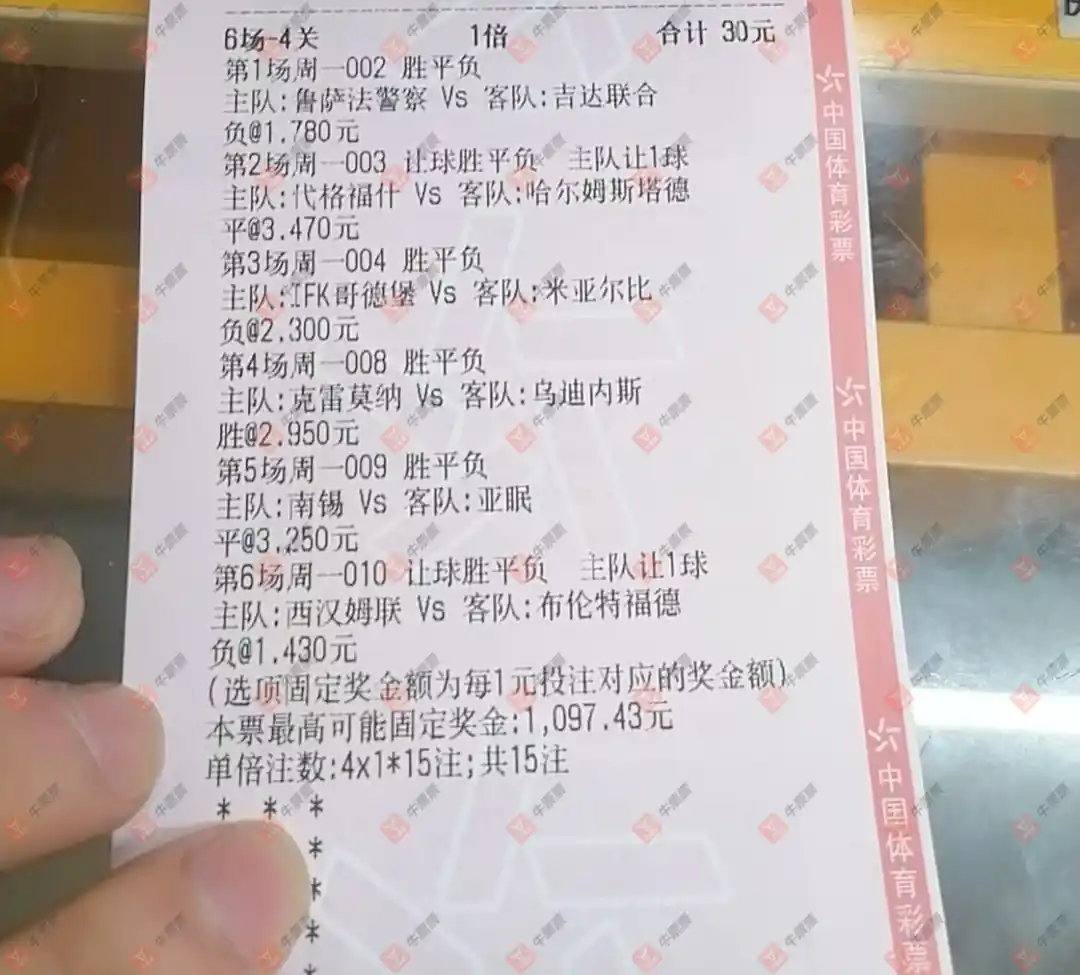 6场-4关 1倍 合计 30元
第1场周一002 胜平负
主队:鲁萨法警察 Vs 客队:吉达联合
负@1.780元
第2场周一003 让球胜平负 主队让1球
主队:代格福什 Vs 客队:哈尔姆斯塔德
平@3.470元
第3场周一004 胜平负
主队:IFK哥德堡 Vs 客队:米亚尔比
负@2.300元
第4场周一008 胜平负
主队:克雷莫纳 Vs 客队:乌迪内斯
胜@2.950元
第5场周一009 胜平负
主队:南锡 Vs 客队:亚眠
平@3.250元
第6场周一010 让球胜平负 主队让1球
主队:西汉姆联 Vs 客队:布伦特福德
负@1.430元
(选项固定奖金额为每1元投注对应的奖金额)
本票最高可能固定奖金:1,097.43元
单倍注数:4x1*15注;共15注
* * *
*
*
*
*
中国体育彩票
中国体育彩票
中国体育彩票